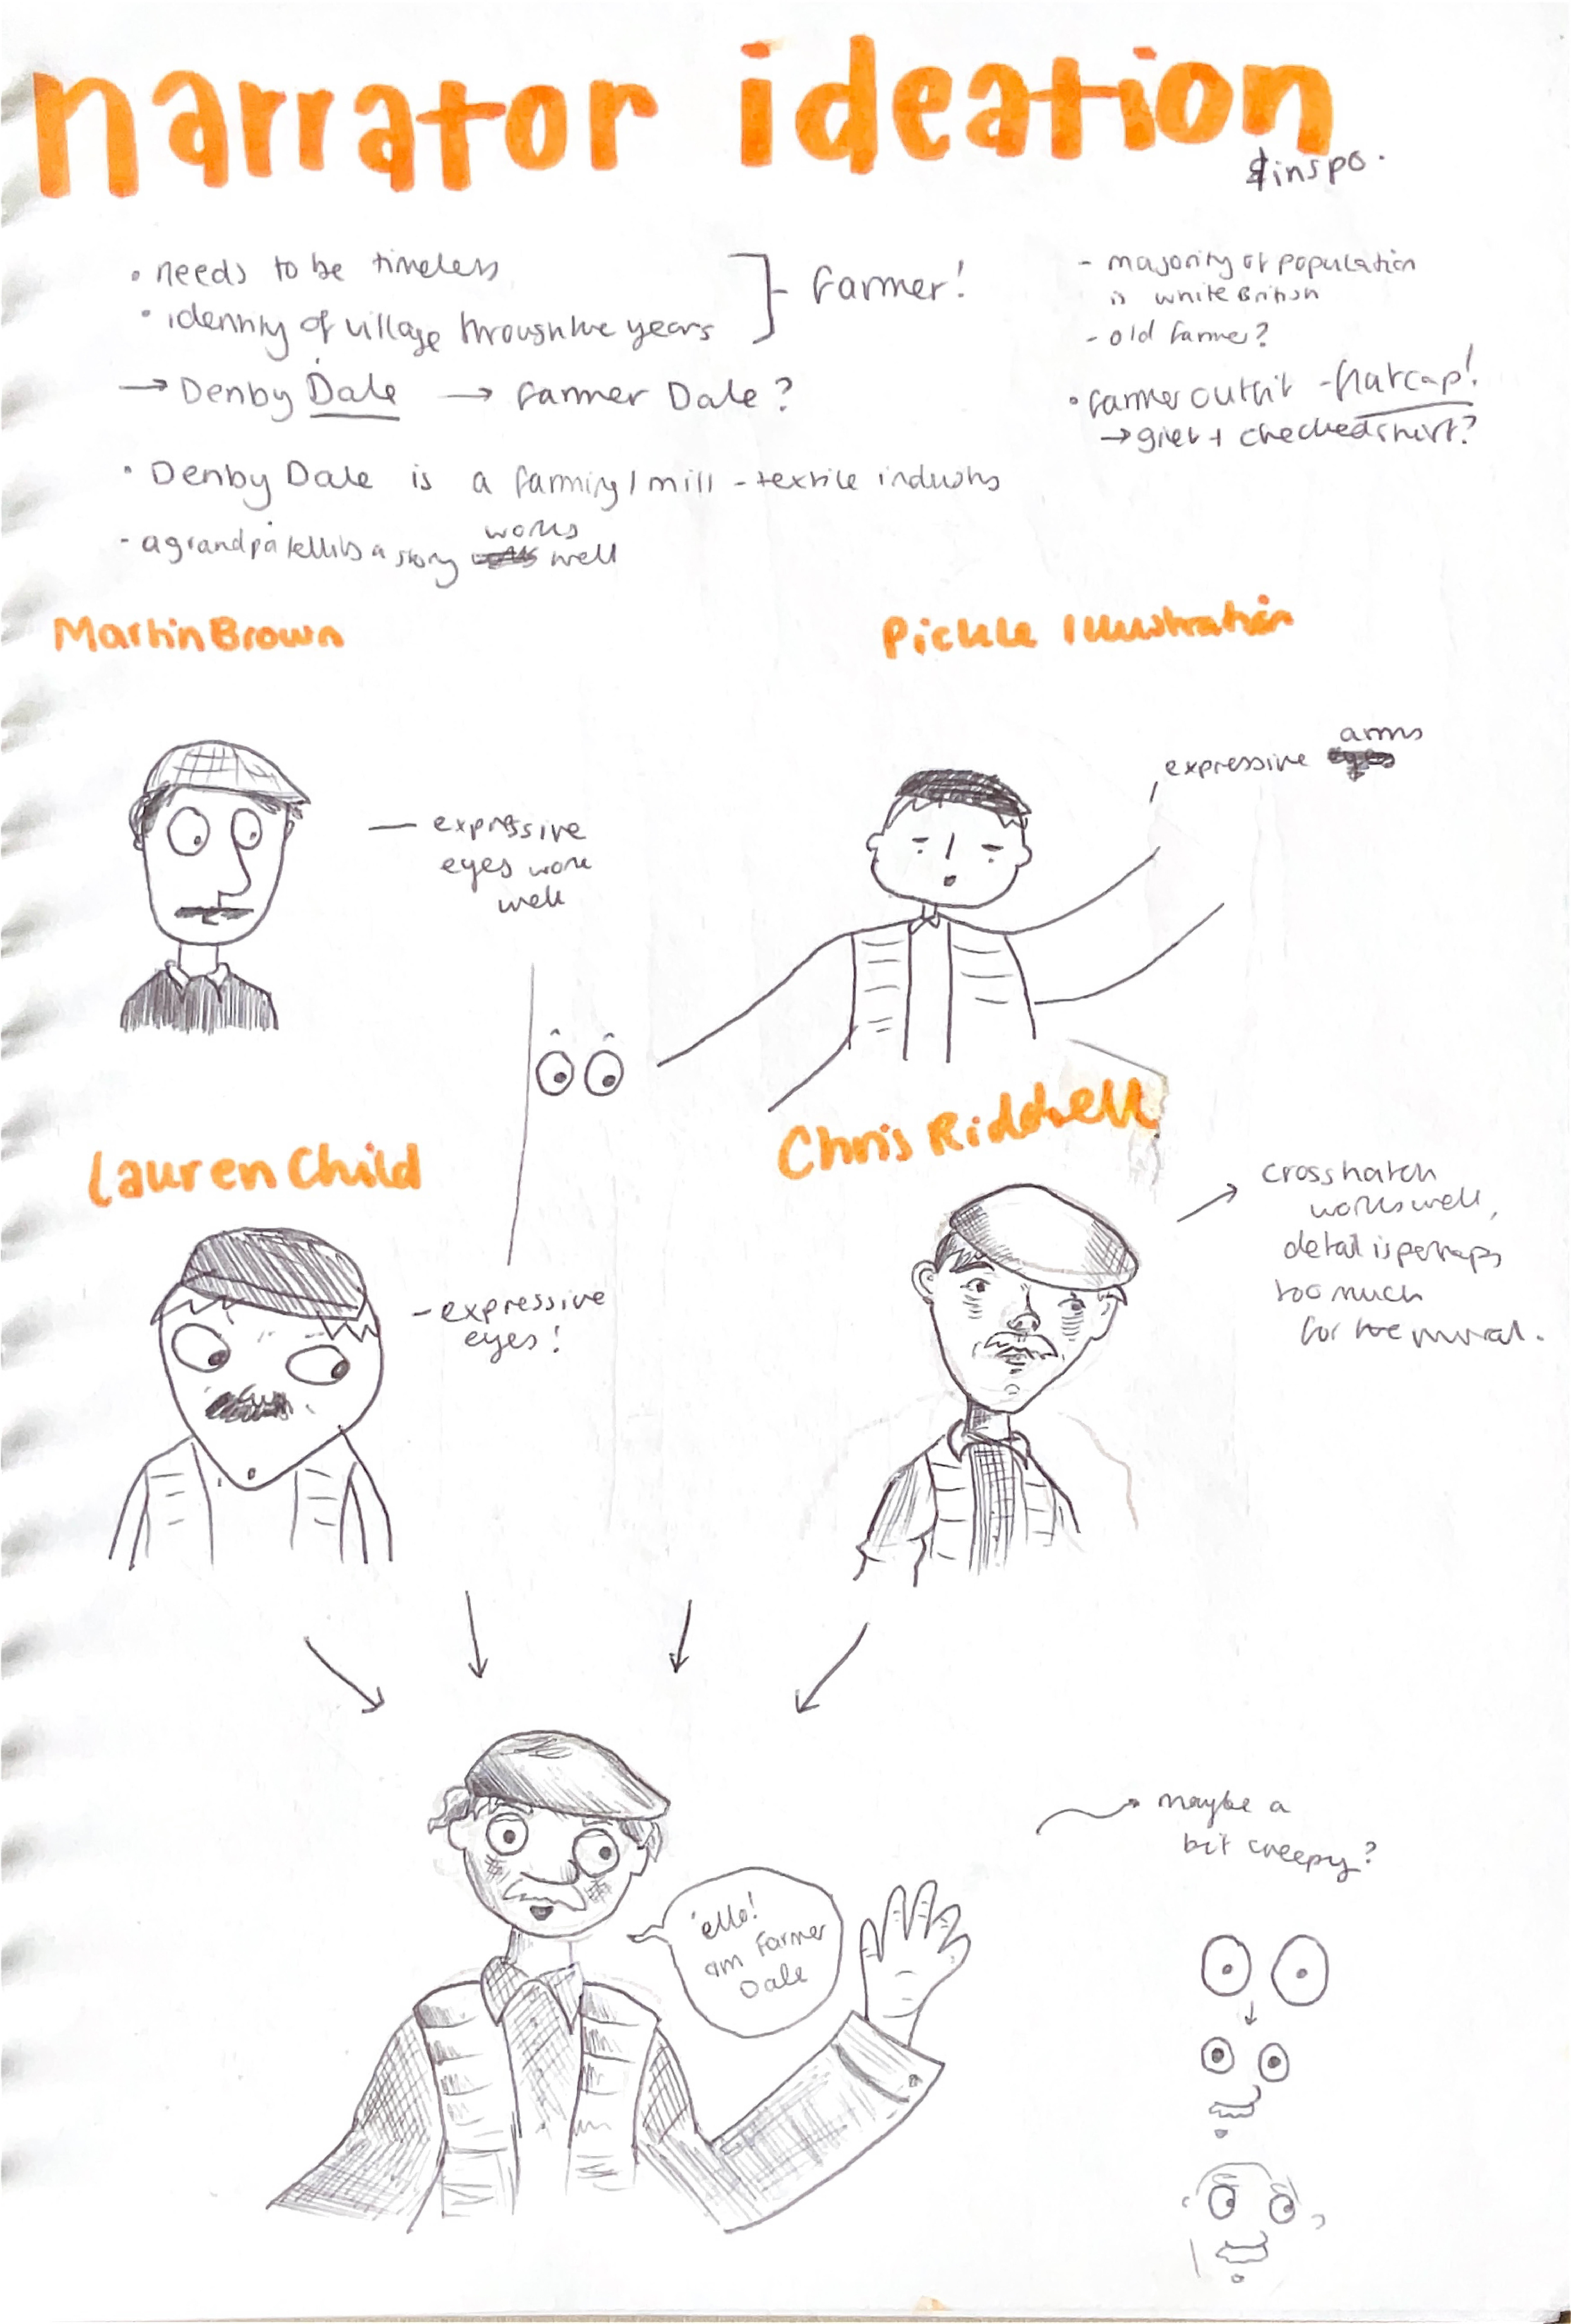 narrator ideation
& inspo.
• needs to be timeless
• identity of village through the years
Farmer!
→ Denby Dale → Farmer Dale?
• Denby Dale is a farming/mill - textile industry
- a grandpa telling a story works well
- majority of population
is white British
- old farmer?
• farmer outfit - flatcap!
→ gilet + checked shirt?
Martin Brown
- expressive
eyes work
well
Pickle Illustration
expressive arms
Lauren Child
- expressive
eyes!
Chris Riddell
crosshatch
works well,
detail is perhaps
too much
for the mural.
'ello!
am Farmer
Dale
maybe a
bit creepy?